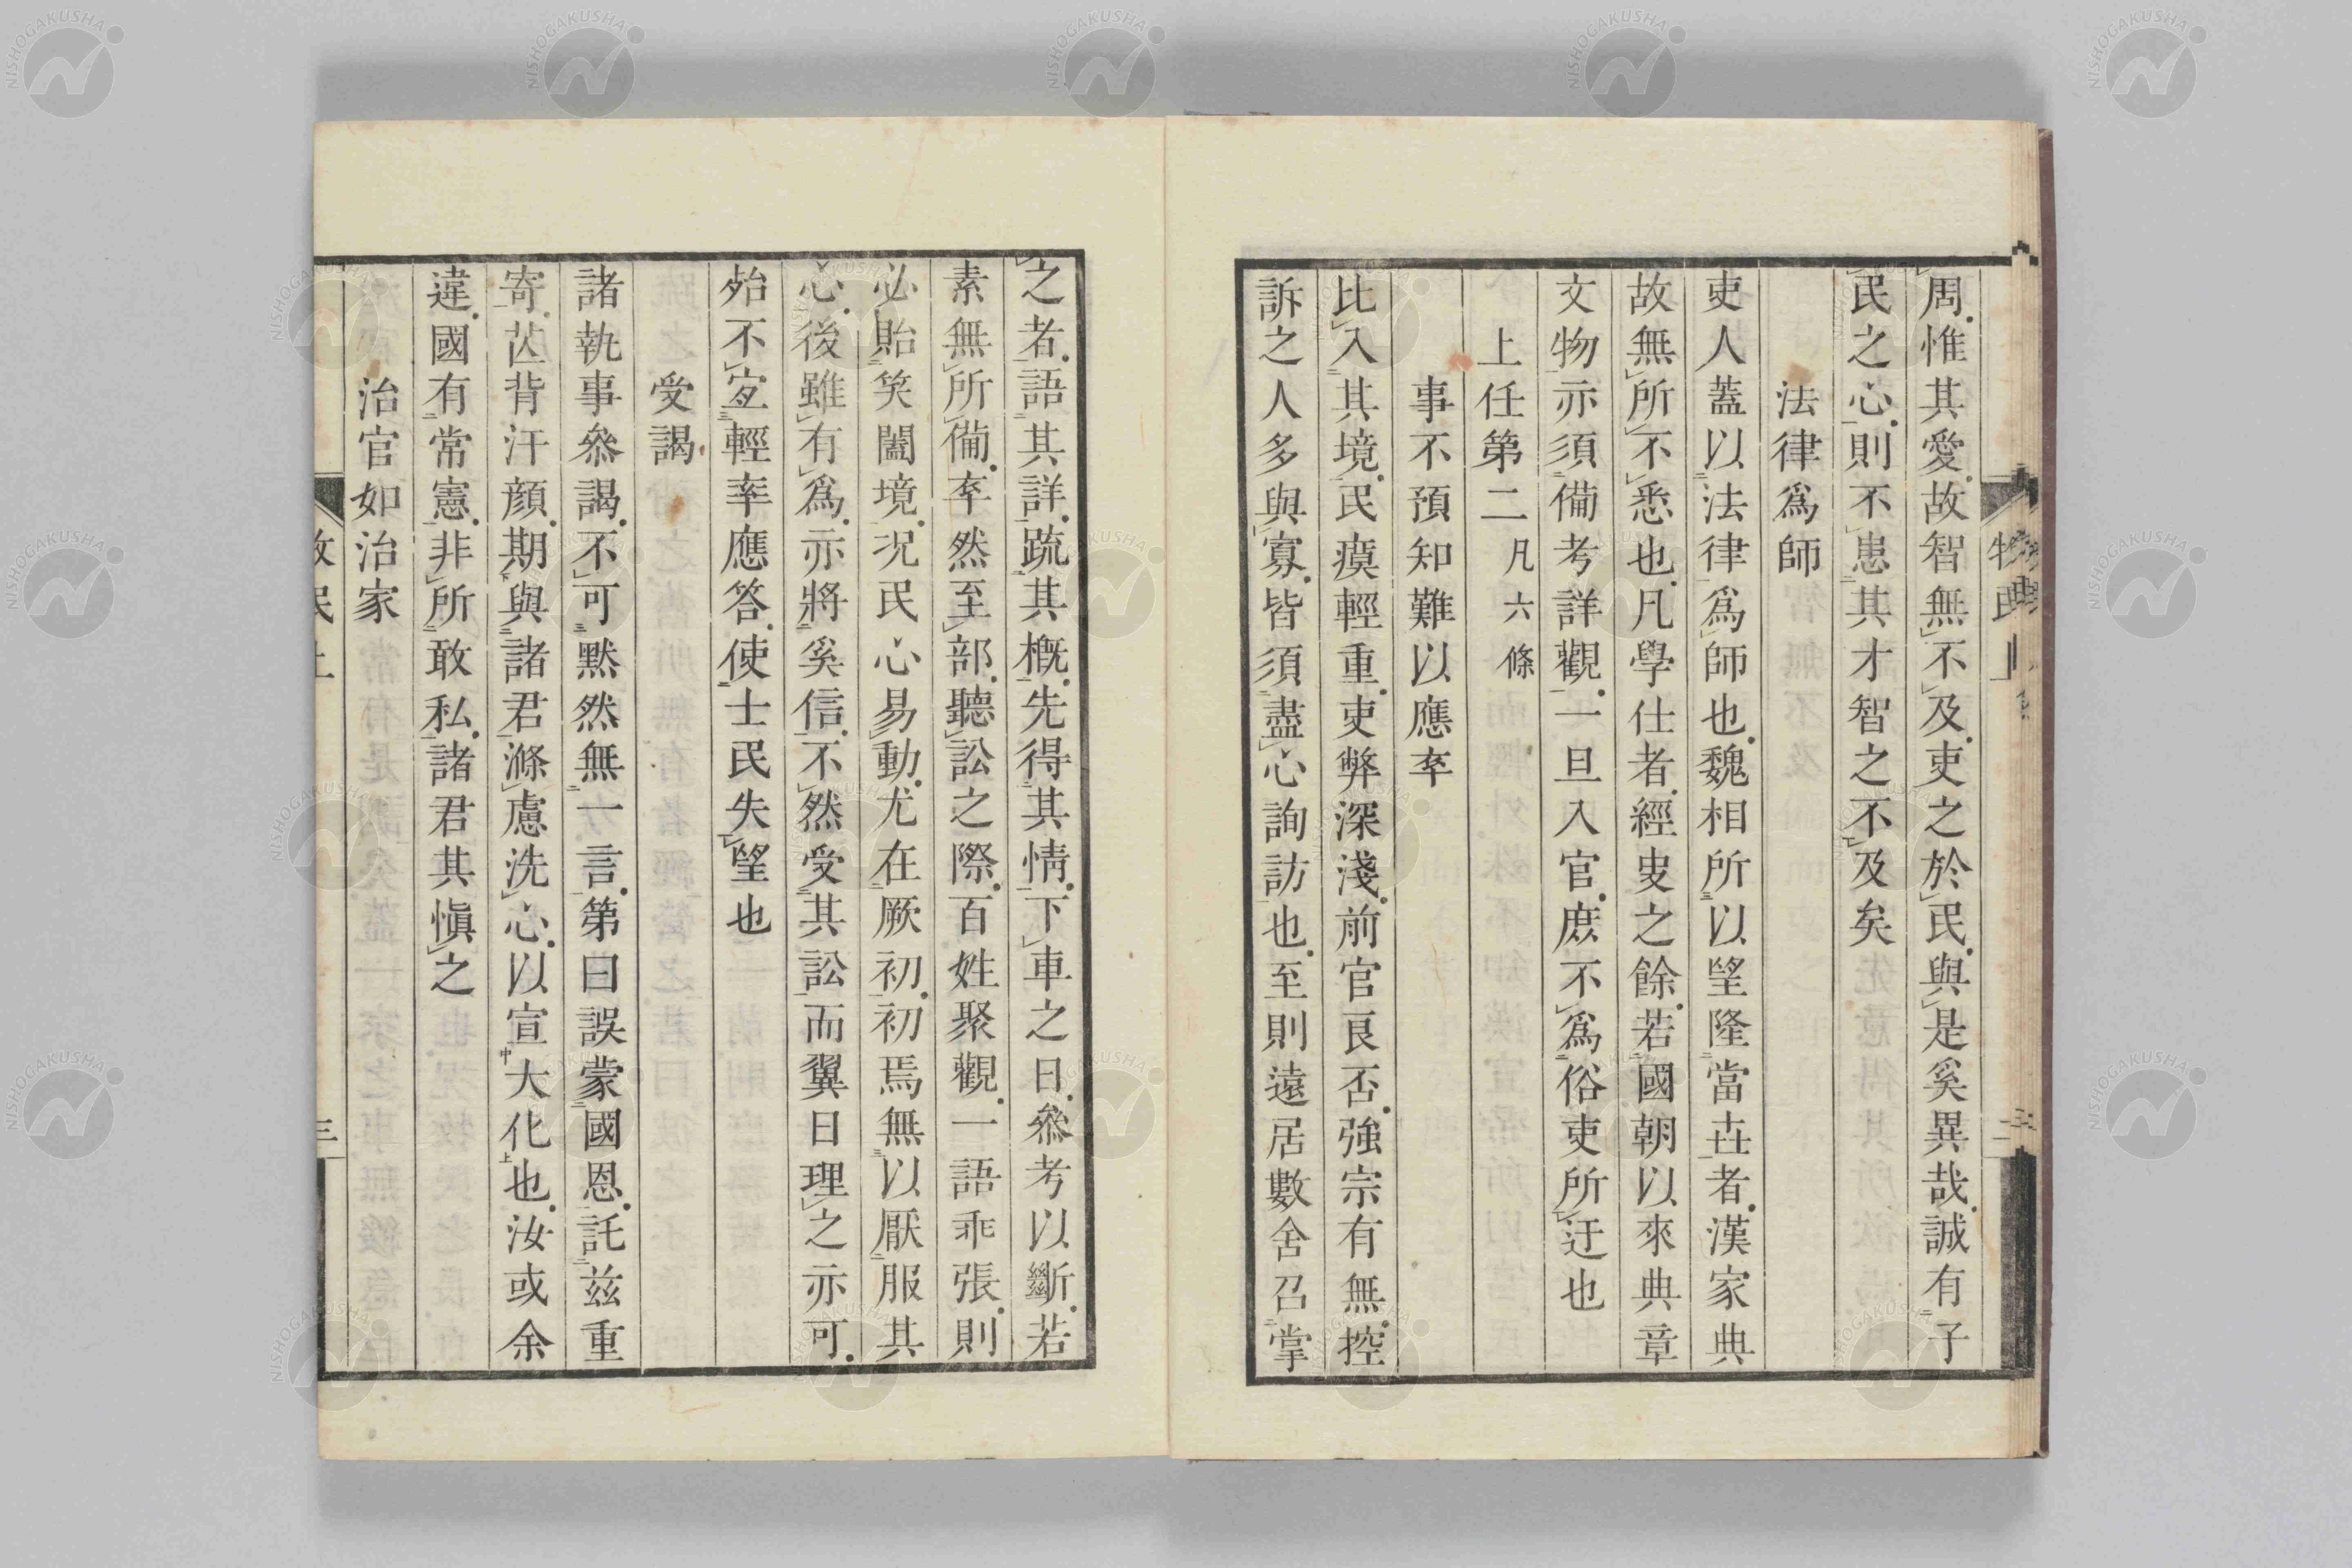 周惟其愛故智無不及吏之於民與是奚異哉誠有子
民之心則不患其才智之不及矣
法律爲師
吏人蓋以法律爲師也魏相所以望隆當世者漢家典
故無所不悉也凡學仕者經史之餘若國朝以來典章
文物亦須備考詳觀一旦入官庶不爲俗吏所迂也
上任第二凡六條
事不預知難以應卒
比入其境民瘼輕重吏弊深淺前官良否強宗有無控
訴之人多與寡皆須盡心詢訪也至則遠居數舍召掌
之者語其詳疏其槪先得其情下車之日叅考以斷若
素無所備卒然至部聽訟之際百姓聚觀一語乖張則
必貽笑闔境況民心易動尤在厥初初焉無以厭服其
心後雖有爲亦將奚信不然受其訟而翼日理之亦可
殆不宜輕率應答使士民失望也
受謁
諸執事叅謁不可黙然無一言第曰誤蒙國恩託茲重
寄芒背汗顔期與諸君滌慮洗心以宣大化也汝或余
違國有常憲非所敢私諸君其愼之
治官如治家
牧民上
三
NISHOGAKUSHA